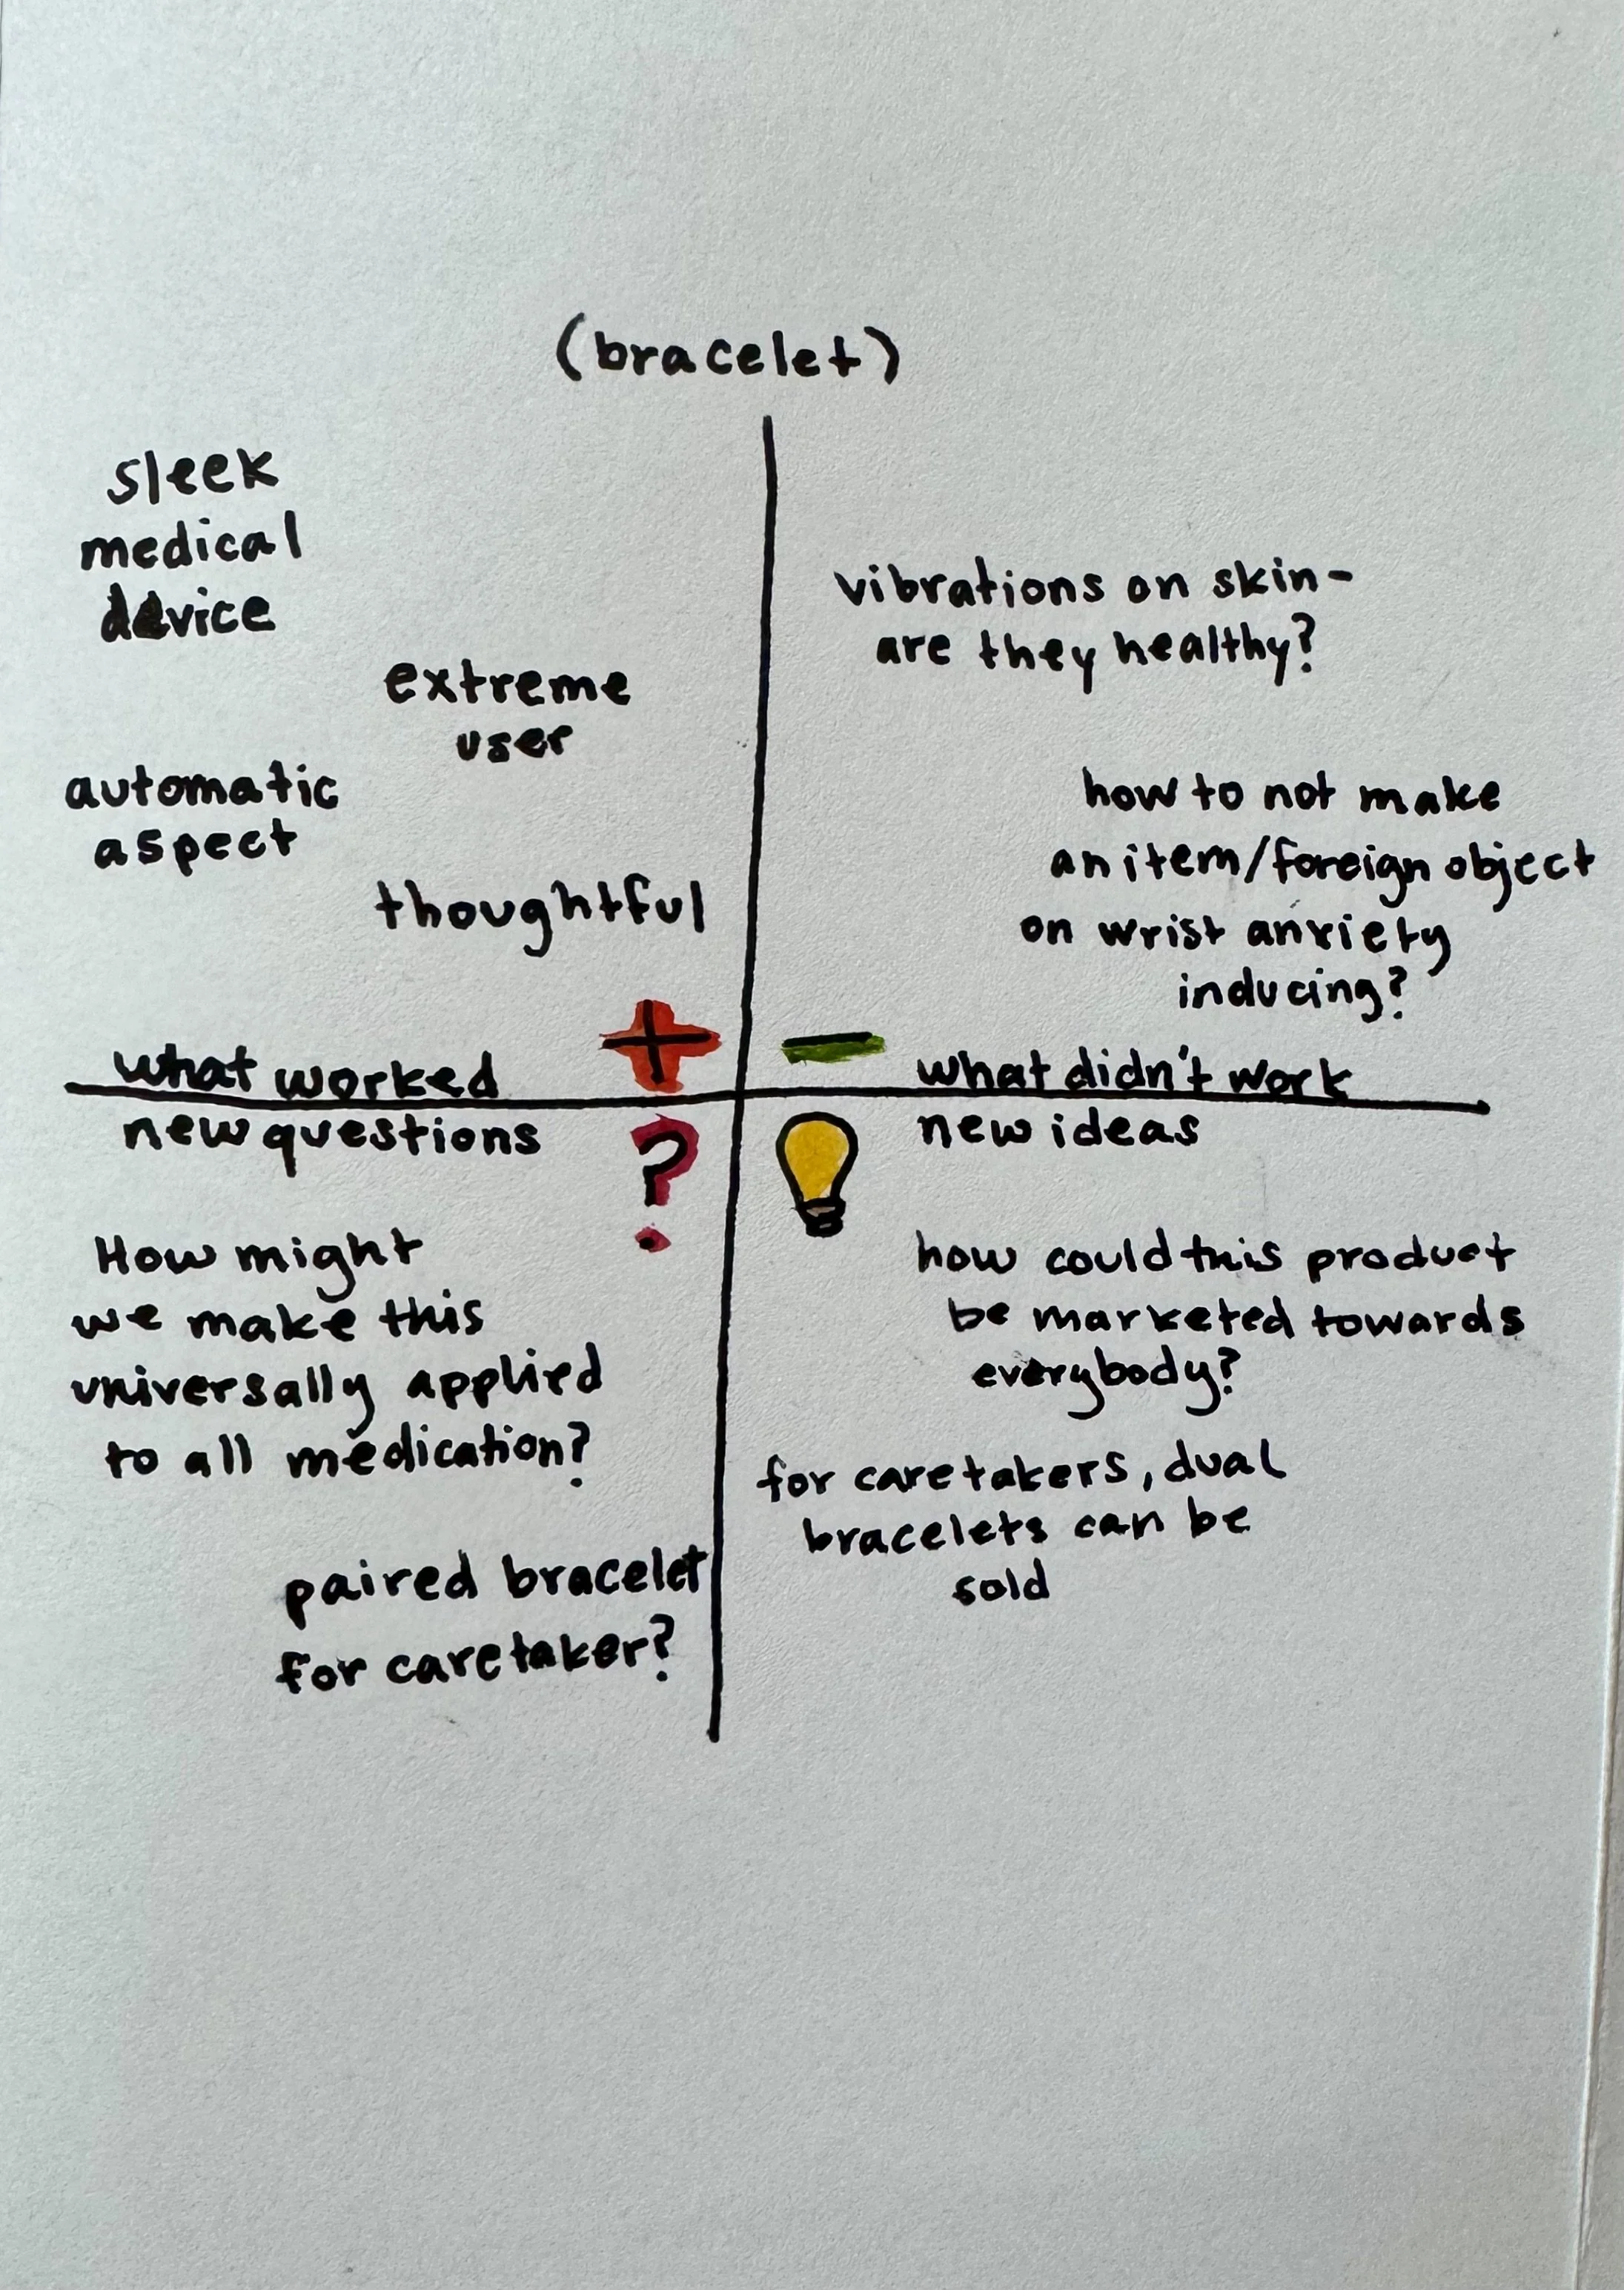 (bracelet)
sleek
medical
device
extreme
user
automatic
aspect
thoughtful
+
what worked
vibrations on skin-
are they healthy?
how to not make
an item/foreign object
on wrist anxiety
inducing?
–
what didn't work
new questions
?
How might
we make this
universally applied
to all medication?
paired bracelet
for caretaker?
new ideas
how could this product
be marketed towards
everybody?
for caretakers, dual
bracelets can be
sold